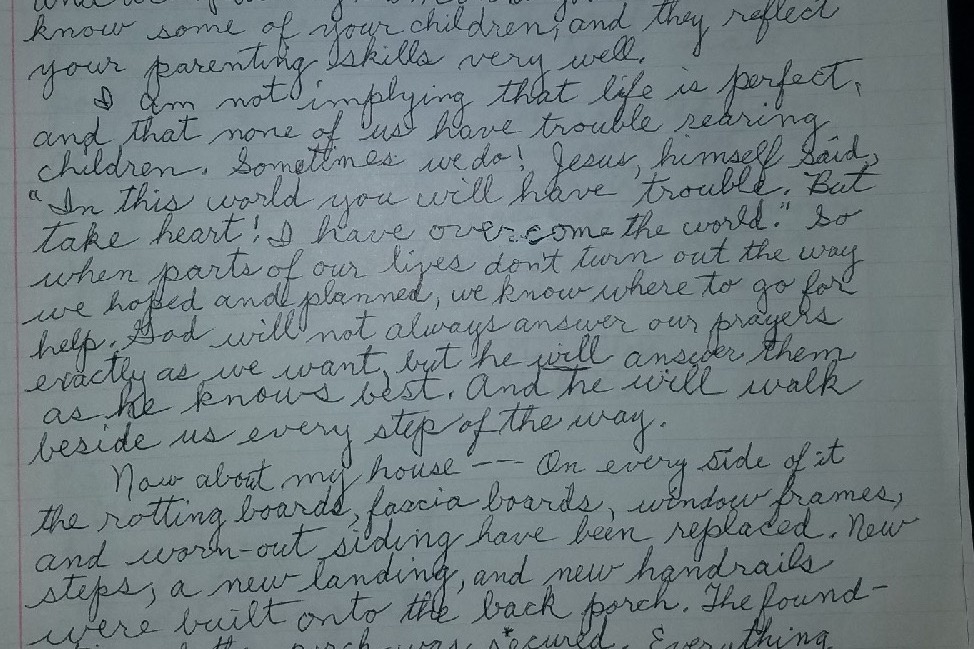 know some of your children, and they reflect
your parenting skills very well.
I am not implying that life is perfect,
and that none of us have trouble rearing
children. Sometimes we do! Jesus, himself said,
"In this world you will have trouble. But
take heart! I have overcome the world." So
when parts of our lives don't turn out the way
we hoped and planned, we know where to go for
help. God will not always answer our prayers
exactly as we want, but he will answer them
as he knows best. And he will walk
beside us every step of the way.
Now about my house --- On every side of it
the rotting boards, fascia boards, window frames,
and worn-out siding have been replaced. New
steps, a new landing, and new handrails
were built onto the back porch. The found-
porch was secured. Everything